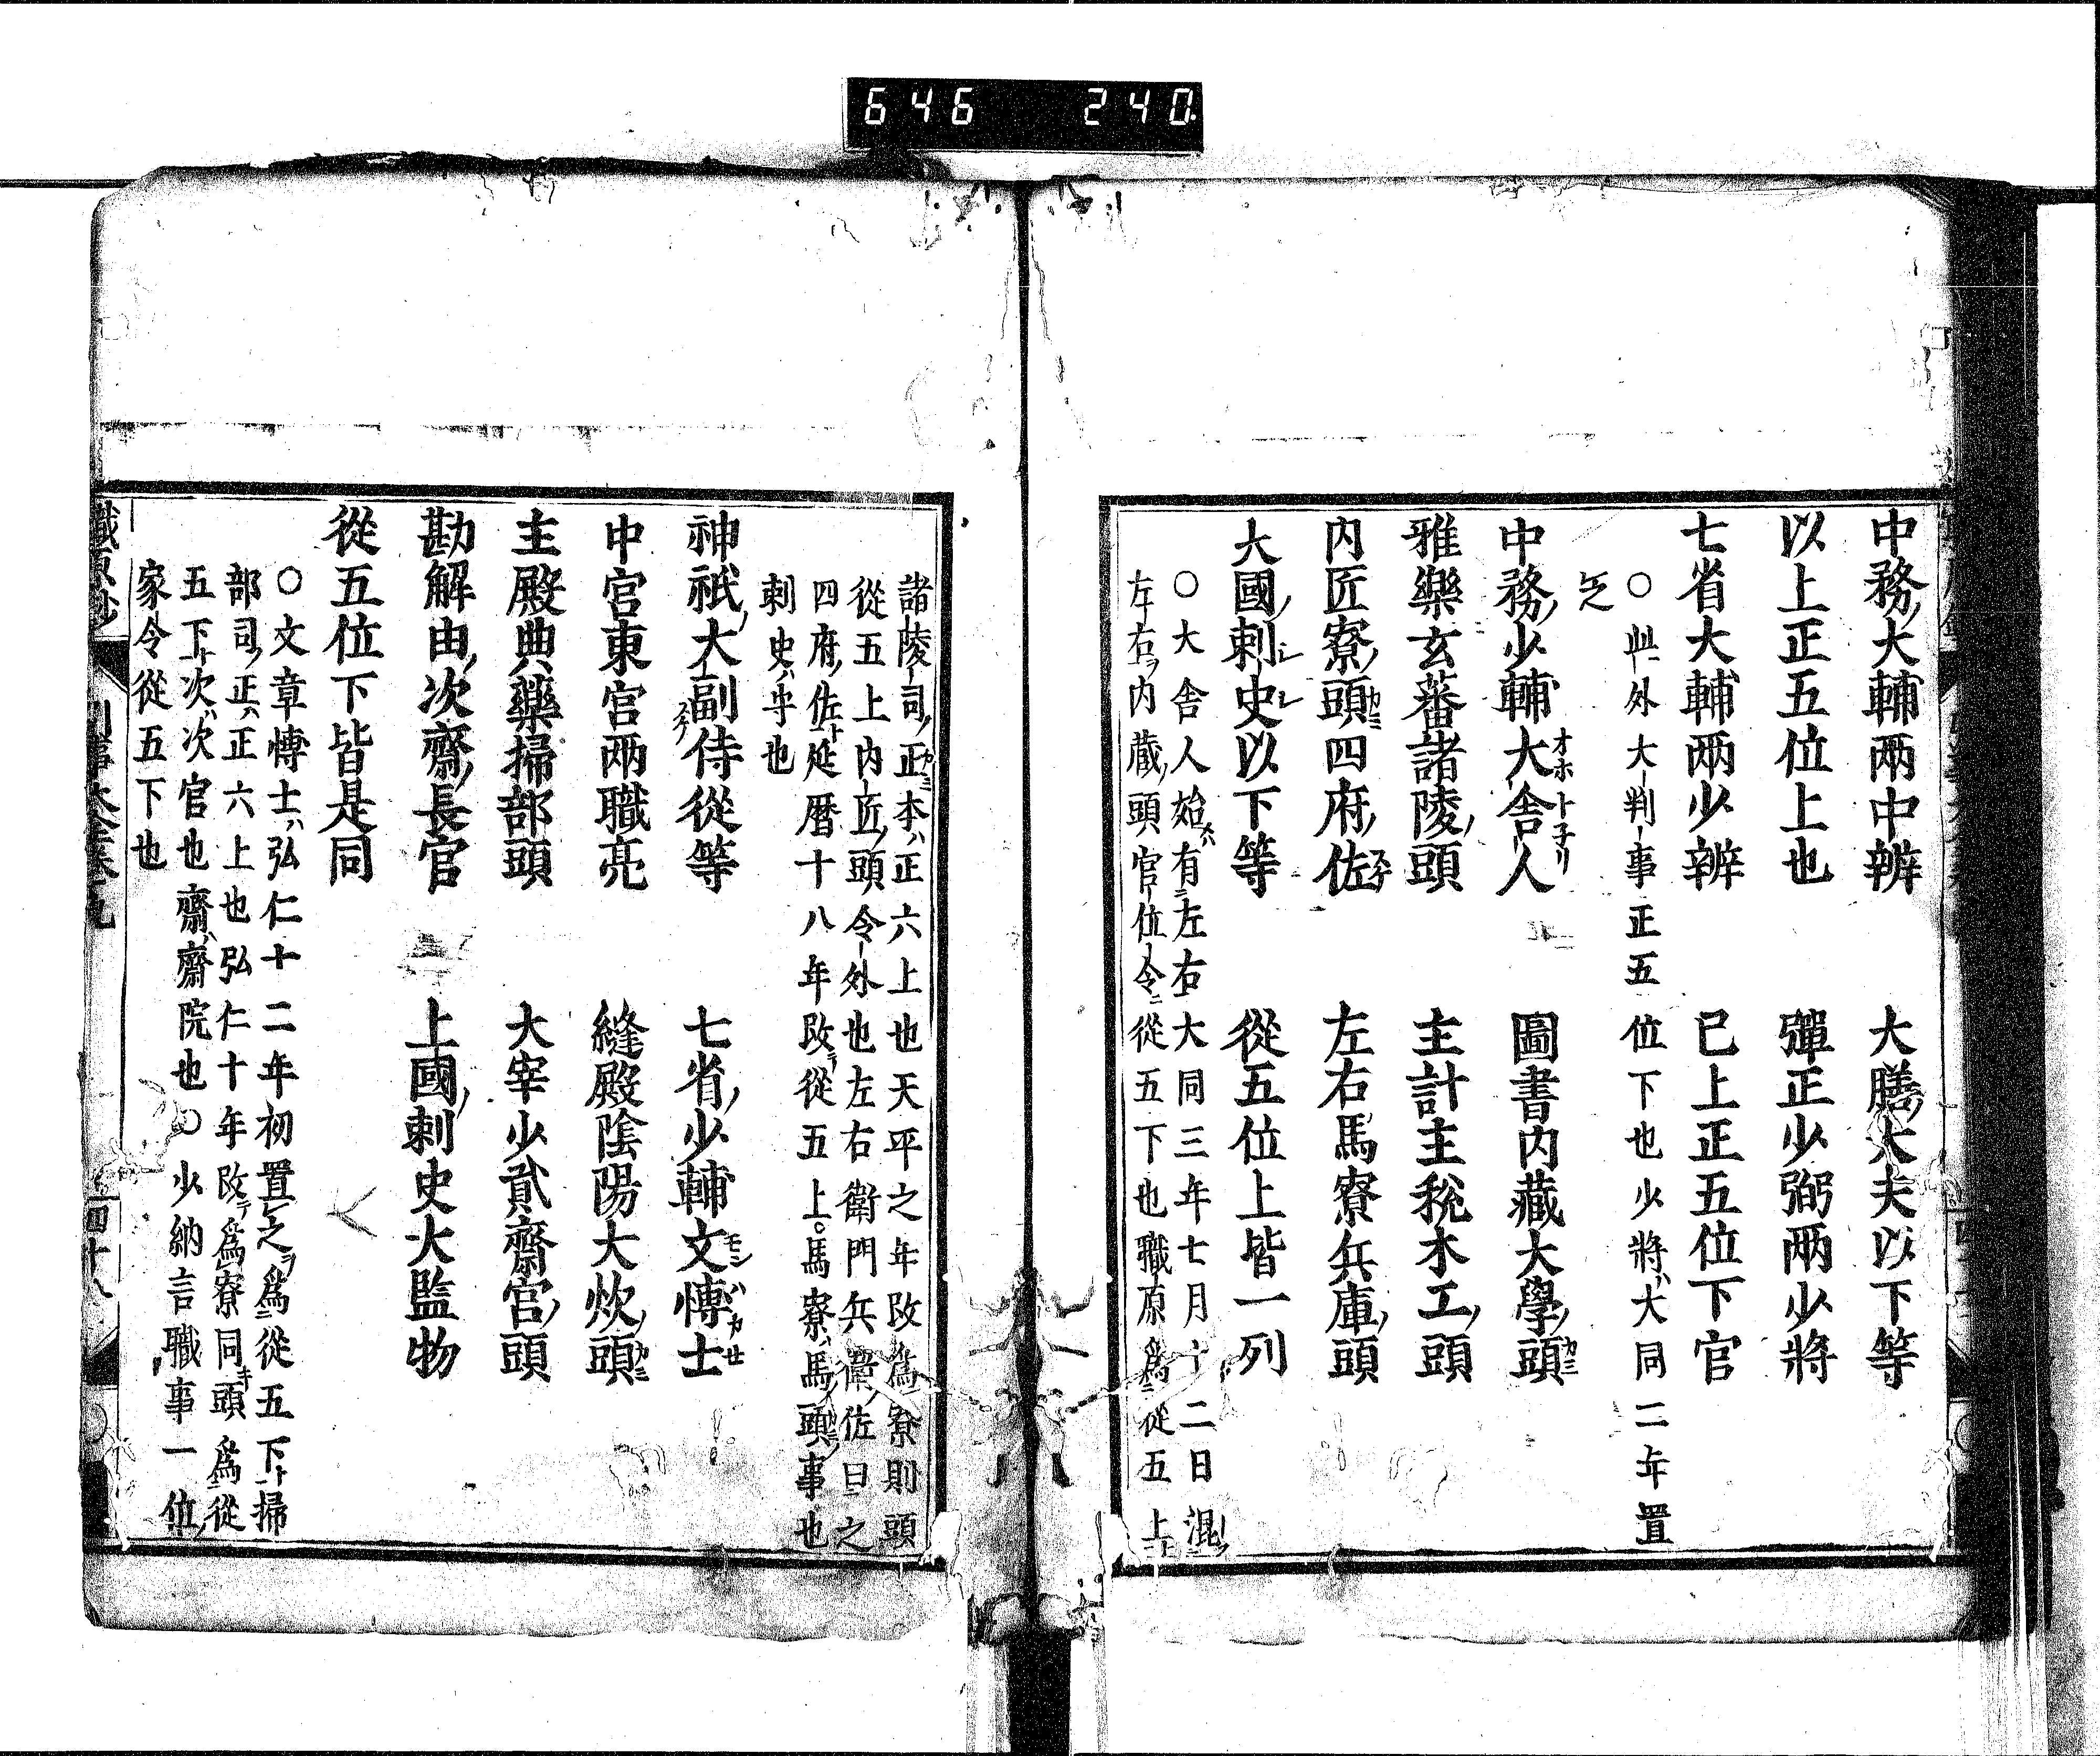 646 240
中務ノ大輔兩中辨 大膳ノ大夫以下等
以上正五位上也 彈正少弼兩少將
七省大輔兩少辨 已上正五位下官
○此外大判事正五位下也少將ハ大同二年置
之
中務ノ少輔大舎人オホトネリ 圖書内藏大學ノ頭カミ
雅樂玄蕃諸陵ノ頭 主計主稅木工ノ頭
内匠寮ノ頭カミ四府ノ佐スケ 左右馬寮兵庫ノ頭
大國ノ刺史以下等 從五位上皆一列
○大舎人始ハ有左右大同三年七月十二日混
左右ヲ内蔵ノ頭官位令ニ從五下也職原爲從五上
諸陵司ノ正カミ本ハ正六上也天平之年改爲寮則頭
從五上内匠ノ頭令外也左右衛門兵衛ノ佐曰之
四府ノ佐ト延暦十八年改從五上馬寮ハ馬ノ頭事也
刺史ハ守也
神祇ノ大副スケ侍從等 七省ノ少輔文モン愽ハカ士セ
中宮東宮兩職亮 縫殿陰陽大炊ノ頭カミ
主殿典藥掃部頭 大宰少貳齋宮ノ頭
勘解由ノ次齋ノ長官 上國ノ刺史大監物
從五位下皆是同
○文章愽士ハ弘仁十二年初置之ヲ爲從五下ト掃
部司ノ正ハ正六上也弘仁十年改爲寮同頭爲從
五下ト次ハ次官也齋ハ齋院也○少納言職事一位ノ
家令從五下也
職原鈔 四十八